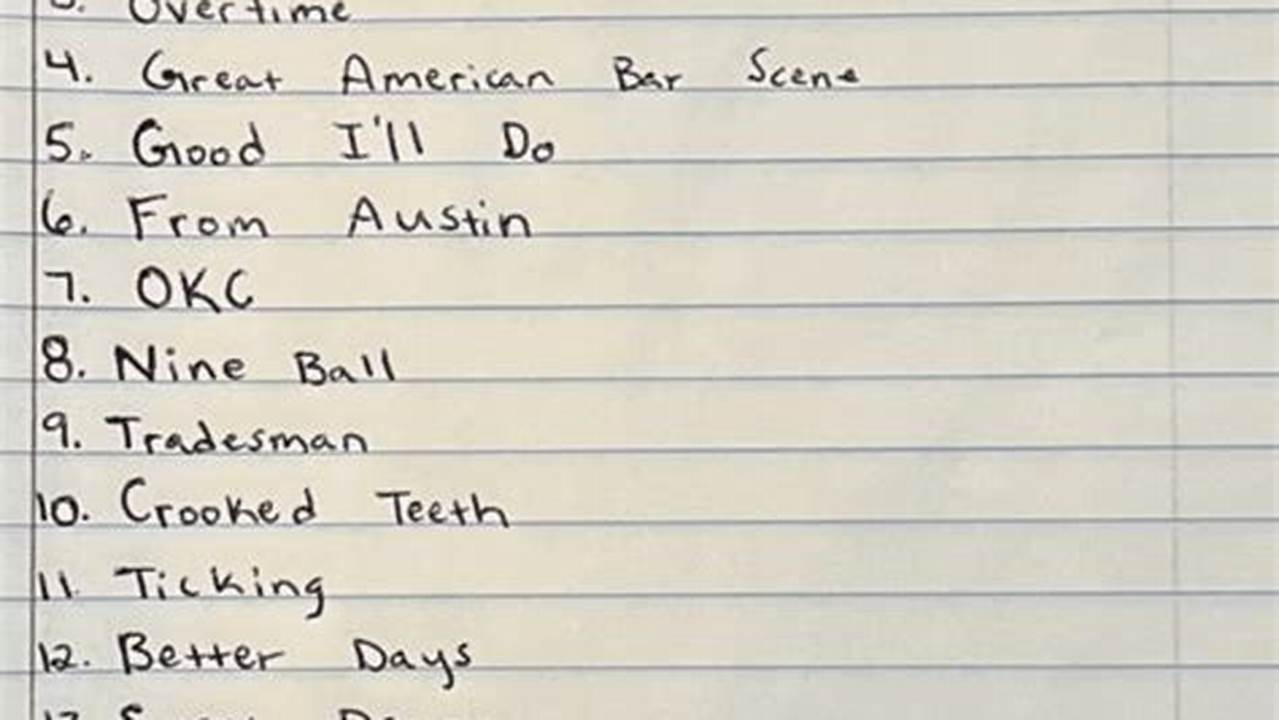 3. Overtime
4. Great American Bar Scene
5. Good I'll Do
6. From Austin
7. OKC
8. Nine Ball
9. Tradesman
10. Crooked Teeth
11. Ticking
12. Better Days
13.